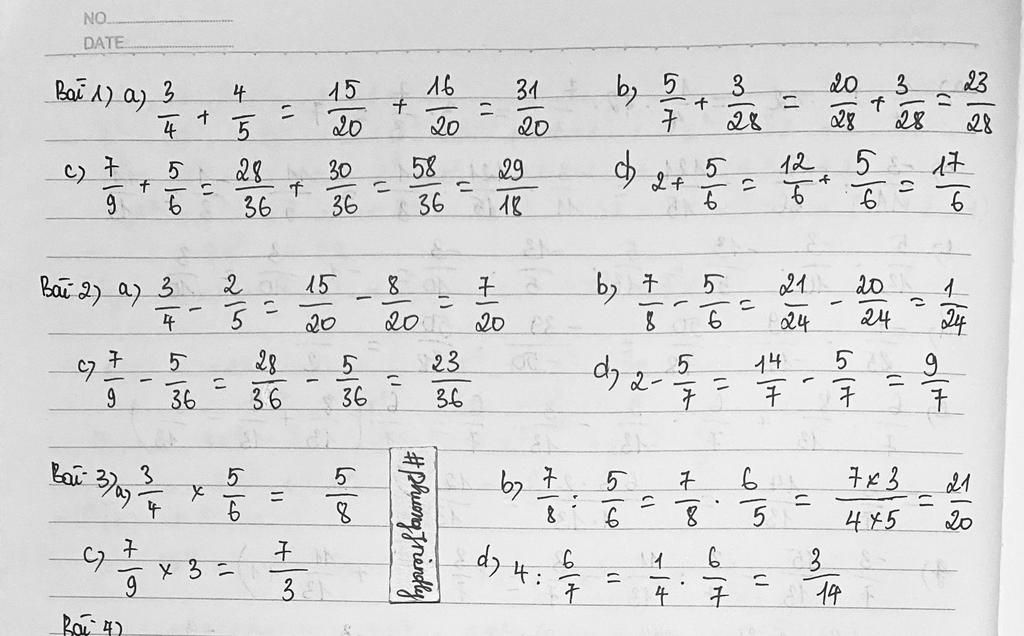 NO
DATE
Bài 1) a) 3/4 + 4/5 = 15/20 + 16/20 = 31/20 b) 5/7 + 3/28 = 20/28 + 3/28 = 23/28
c) 7/9 + 5/6 = 28/36 + 30/36 = 58/36 = 29/18 d) 2 + 5/6 = 12/6 + 5/6 = 17/6
Bài 2) a) 3/4 - 2/5 = 15/20 - 8/20 = 7/20 b) 7/8 - 5/6 = 21/24 - 20/24 = 1/24
c) 7/9 - 5/36 = 28/36 - 5/36 = 23/36 d) 2 - 5/7 = 14/7 - 5/7 = 9/7
Bài 3) a) 3/4 × 5/6 = 5/8 b) 7/8 : 5/6 = 7/8 . 6/5 = 7×3/4×5 = 21/20
c) 7/9 × 3 = 7/3 d) 4 : 6/7 = 1/4 . 6/7 = 3/14
#phuongfriendly
Bài 4)